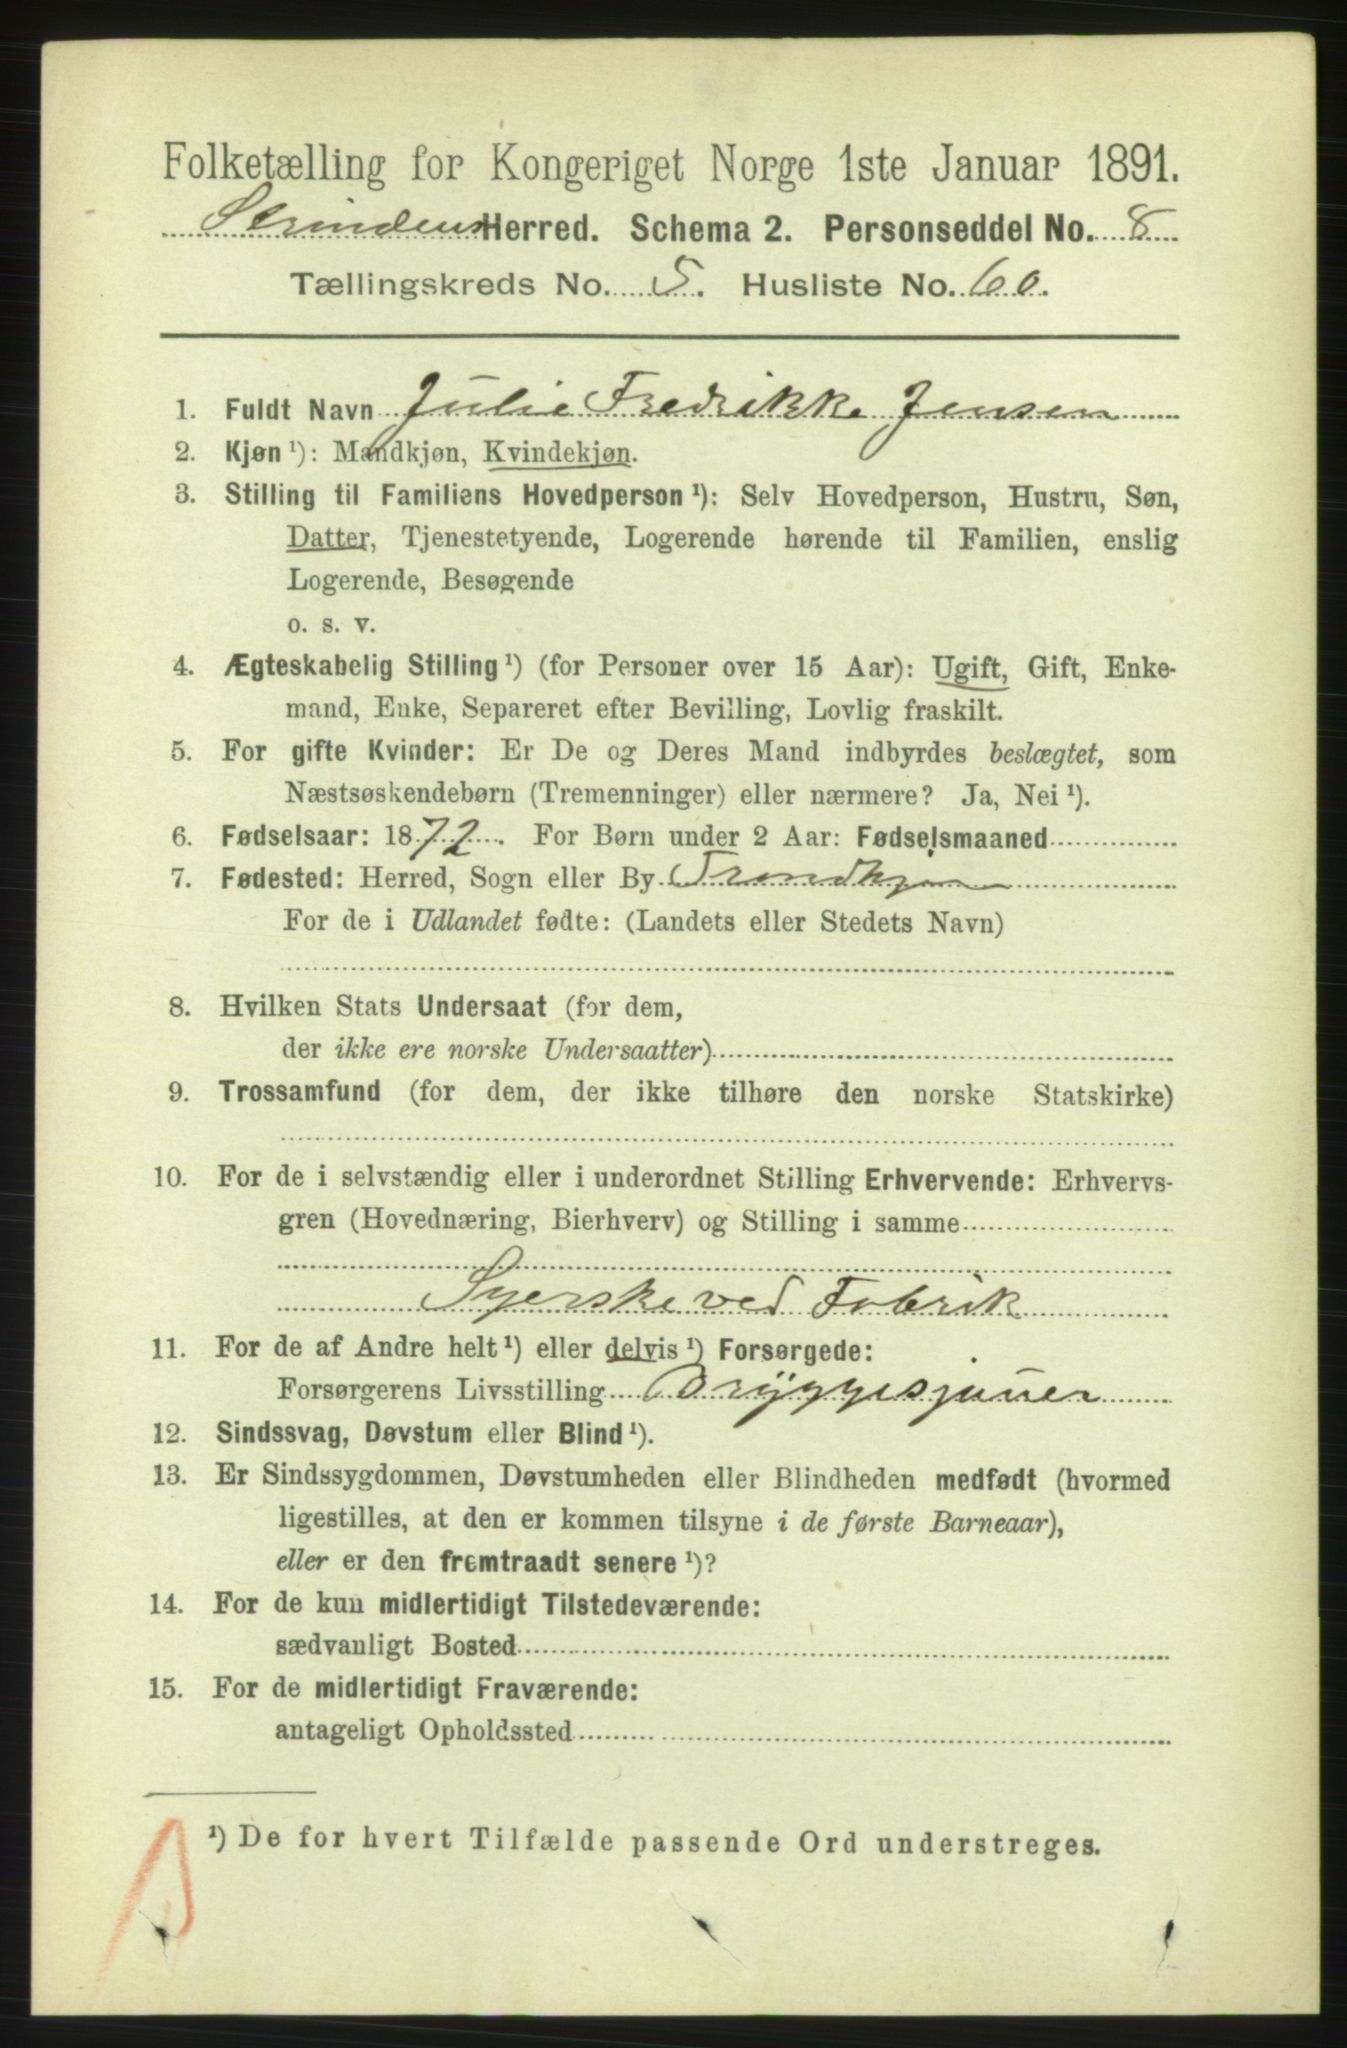 Folketælling for Kongeriget Norge 1ste Januar 1891.
Strindens Herred. Schema 2. Personseddel No. 8
Tællingskreds No. 5. Husliste No. 60.
1. Fuldt Navn Julie Fredrikke Jensen
2. Kjøn ¹): Mandkjøn, Kvindekjøn.
3. Stilling til Familiens Hovedperson ¹): Selv Hovedperson, Hustru, Søn,
Datter, Tjenestetyende, Logerende hørende til Familien, enslig
Logerende, Besøgende
o. s. v.
4. Ægteskabelig Stilling ¹) (for Personer over 15 Aar): Ugift, Gift, Enke-
mand, Enke, Separeret efter Bevilling, Lovlig fraskilt.
5. For gifte Kvinder: Er De og Deres Mand indbyrdes beslægtet, som
Næstsøskendebørn (Tremenninger) eller nærmere? Ja, Nei ¹).
6. Fødselsaar: 1872. For Børn under 2 Aar: Fødselsmaaned
7. Fødested: Herred, Sogn eller By Trondhjem
For de i Udlandet fødte: (Landets eller Stedets Navn)
8. Hvilken Stats Undersaat (for dem,
der ikke ere norske Undersaatter)
9. Trossamfund (for dem, der ikke tilhøre den norske Statskirke)
10. For de i selvstændig eller i underordnet Stilling Erhvervende: Erhvervs-
gren (Hovednæring, Bierhverv) og Stilling i samme
Syerske ved Fabrik
11. For de af Andre helt ¹) eller delvis ¹) Forsørgede:
Forsørgerens Livsstilling Bryggesjauer
12. Sindssvag, Døvstum eller Blind ¹).
13. Er Sindssygdommen, Døvstumheden eller Blindheden medfødt (hvormed
ligestilles, at den er kommen tilsyne i de første Barneaar),
eller er den fremtraadt senere ¹)?
14. For de kun midlertidigt Tilstedeværende:
sædvanligt Bosted
15. For de midlertidigt Fraværende:
antageligt Opholdssted
¹) De for hvert Tilfælde passende Ord understreges.